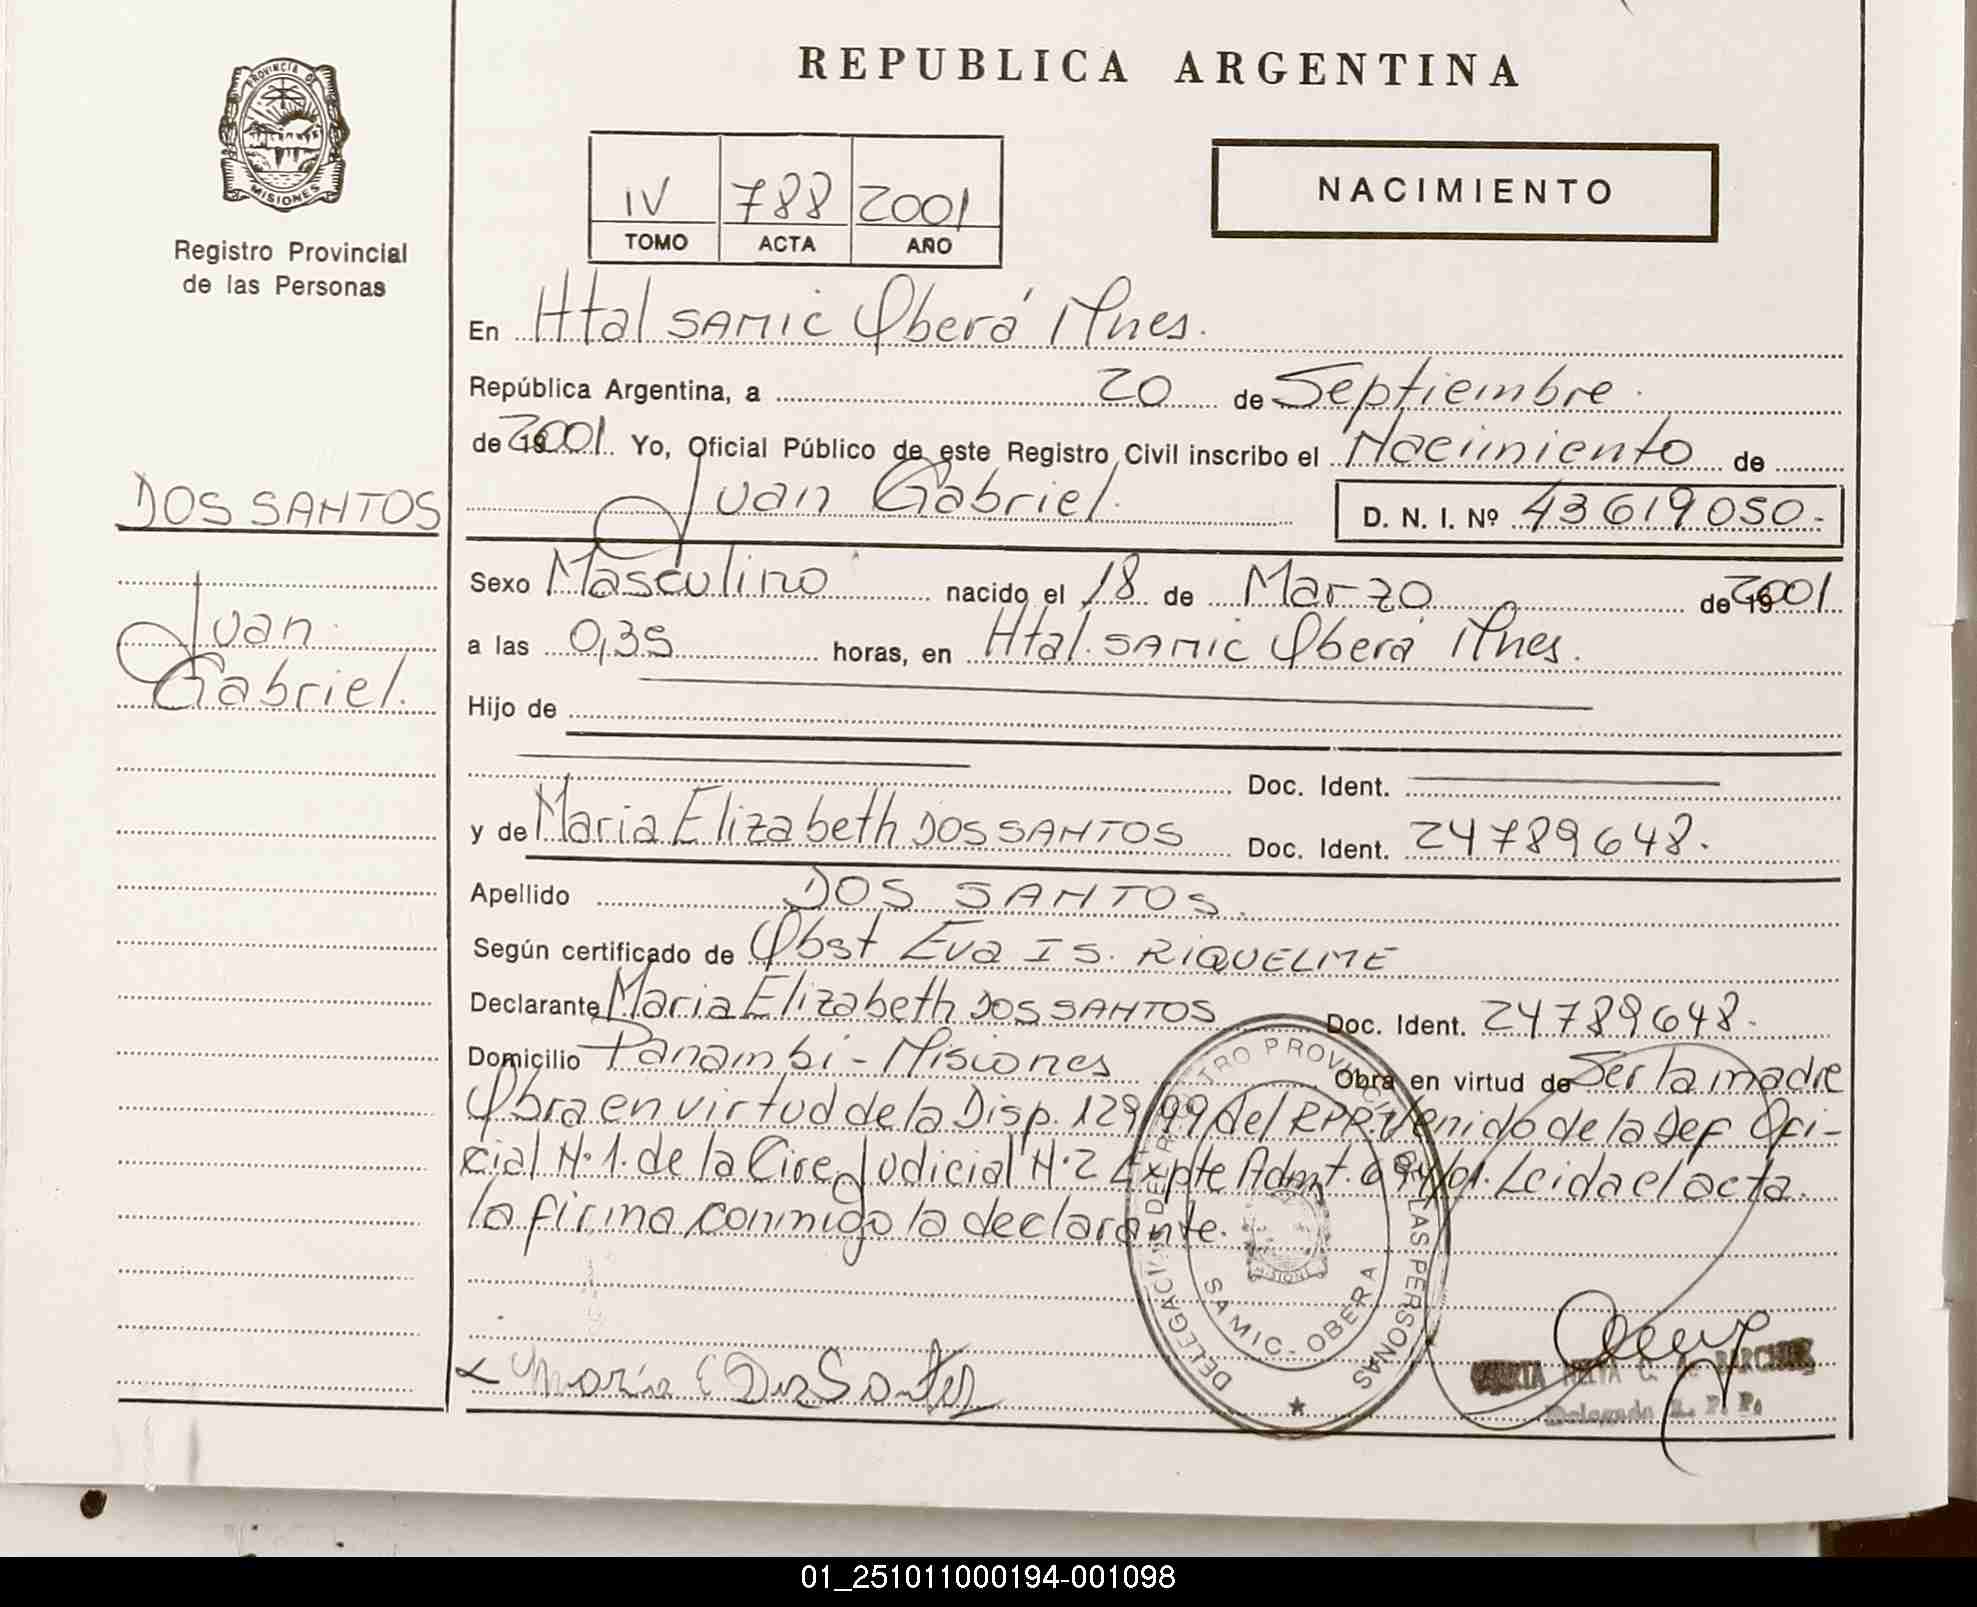 REPUBLICA ARGENTINA
PROVINCIA DE
MISIONES
Registro Provincial
de las Personas
IV 788 2001
TOMO ACTA AÑO
NACIMIENTO
En Htal SAMIC Oberá Mnes.
República Argentina, a 20 de Septiembre.
de 2001. Yo, Oficial Público de este Registro Civil inscribo el Nacimiento de
Juan Gabriel. D. N. I. Nº 43619050.-
DOS SANTOS
Juan
Gabriel.
Sexo Masculino nacido el 18 de Marzo de 2001
a las 0,35 horas, en Htal. SAMIC Oberá Mnes.
Hijo de
Doc. Ident.
y de Maria Elizabeth DOS SANTOS Doc. Ident. 24789648.
Apellido DOS SANTOS.
Según certificado de Obst Eva IS. RIQUELME
Declarante Maria Elizabeth DOS SANTOS Doc. Ident. 24789648.
Domicilio Panambi - Misiones Obra en virtud de Ser la madre
Obra en virtud de la Disp. 129/99 del RPP. Venido de la Def Ofi-
cial N.1. de la Circ Judicial N.2 Expte Admt. 694/01. Leida el acta.
la firma conmigo la declarante.
DELEGACION DEL REGISTRO PROVINCIAL DE LAS PERSONAS
MISIONES
SAMIC - OBERA
Maria E Dos Santos
Delegada R. P. P.
01_251011000194-001098